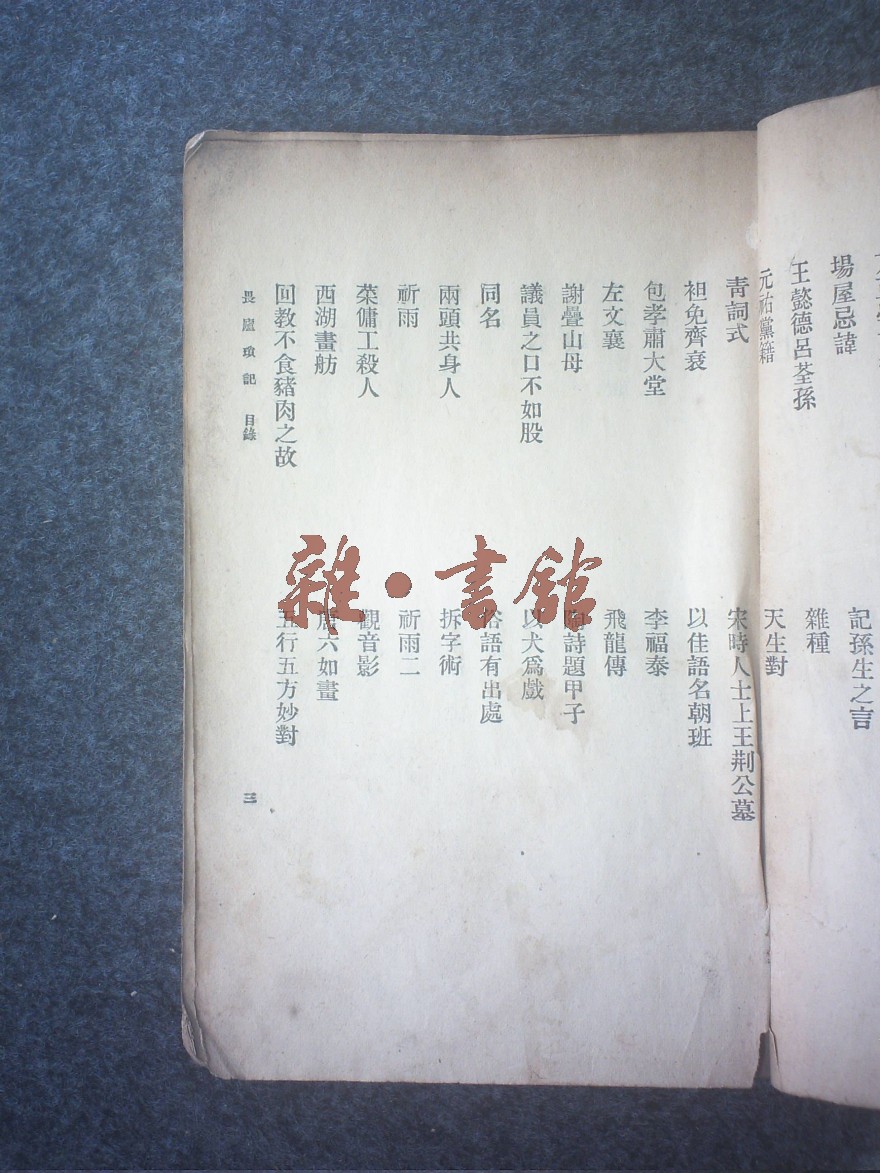 場屋忌諱
王懿德呂荃孫
元祐黨籍
記孫生之言
雜種
天生對
青詞式
袒免齊衰
包孝肅大堂
左文襄
謝疊山母
議員之口不如股
同名
兩頭共身人
祈雨
菜傭工殺人
西湖畫舫
回教不食豬肉之故
宋時人士上王荆公墓
以佳語名朝班
李福泰
飛龍傳
陶詩題甲子
以犬爲戲
俗語有出處
拆字術
祈雨二
觀音影
唐六如畫
五行五方妙對
畏廬瑣記 目錄
三
雜·書館